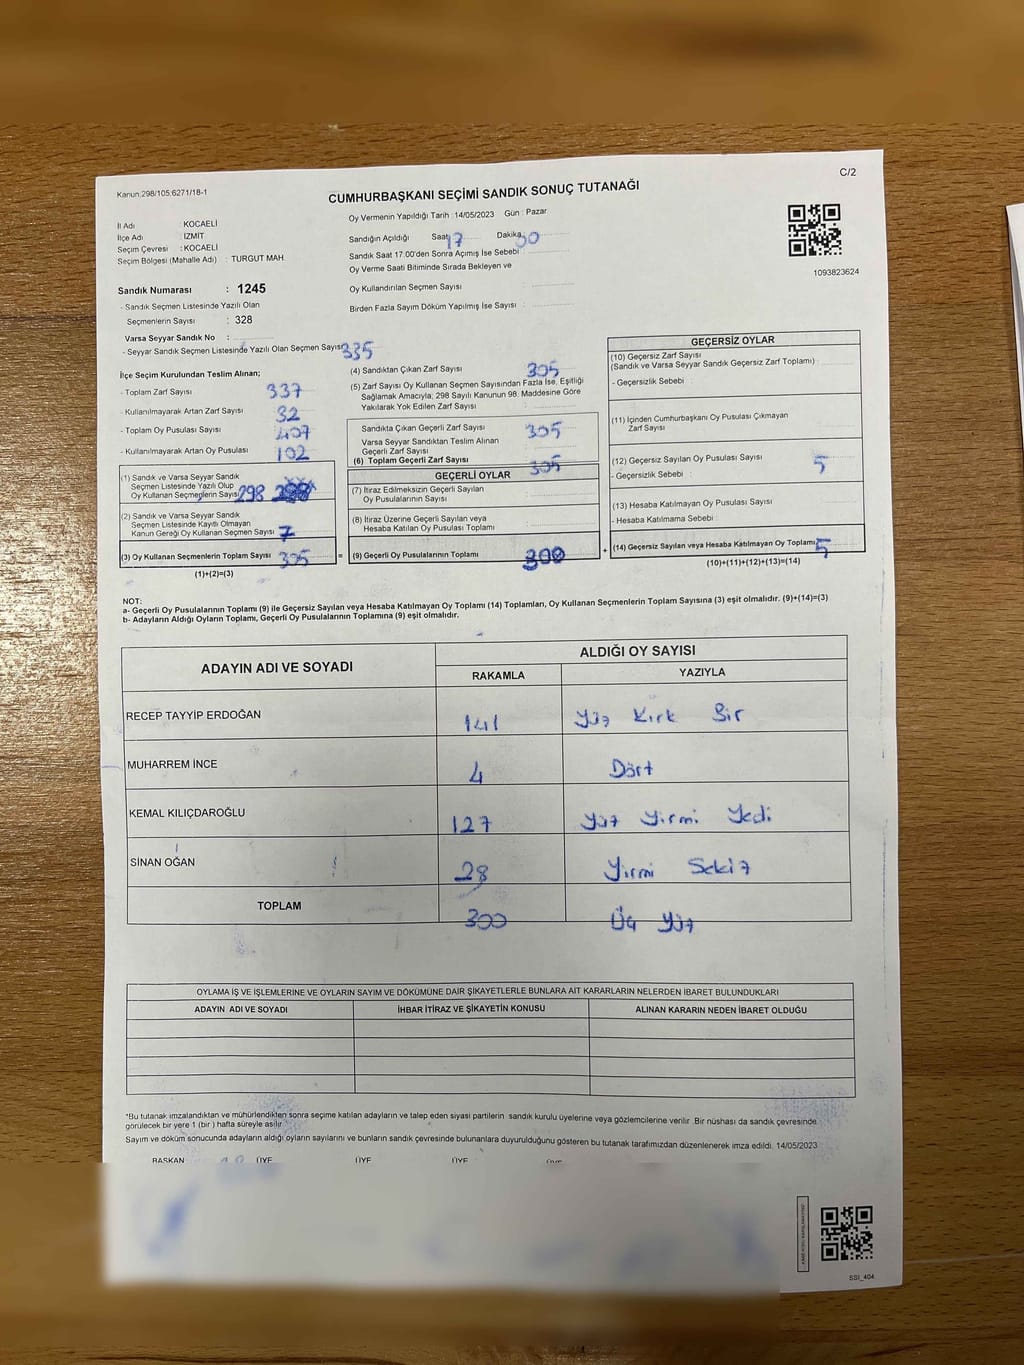 Kanun:298/105;6271/18-1
C/2
CUMHURBAŞKANI SEÇİMİ SANDIK SONUÇ TUTANAĞI
İl Adı : KOCAELİ
İlçe Adı : İZMİT
Seçim Çevresi : KOCAELİ
Seçim Bölgesi (Mahalle Adı) : TURGUT MAH.
Oy Vermenin Yapıldığı Tarih : 14/05/2023 Gün : Pazar
Sandığın Açıldığı Saat 17 Dakika 30
Sandık Saat 17:00'den Sonra Açımış İse Sebebi
Oy Verme Saati Bitiminde Sırada Bekleyen ve
Oy Kullandırılan Seçmen Sayısı :
Birden Fazla Sayım Döküm Yapılmış İse Sayısı :
1093823624
Sandık Numarası : 1245
- Sandık Seçmen Listesinde Yazılı Olan
Seçmenlerin Sayısı : 328
Varsa Seyyar Sandık No :
- Seyyar Sandık Seçmen Listesinde Yazılı Olan Seçmen Sayısı 335
İlçe Seçim Kurulundan Teslim Alınan;
- Toplam Zarf Sayısı 337
- Kullanılmayarak Artan Zarf Sayısı 32
- Toplam Oy Pusulası Sayısı 407
- Kullanılmayarak Artan Oy Pusulası 102
(1) Sandık ve Varsa Seyyar Sandık
Seçmen Listesinde Yazılı Olup
Oy Kullanan Seçmenlerin Sayısı 298
(2) Sandık ve Varsa Seyyar Sandık
Seçmen Listesinde Kayıtlı Olmayan
Kanun Gereği Oy Kullanan Seçmen Sayısı 7
(3) Oy Kullanan Seçmenlerin Toplam Sayısı 305 =
(1)+(2)=(3)
(4) Sandıktan Çıkan Zarf Sayısı 305
(5) Zarf Sayısı Oy Kullanan Seçmen Sayısından Fazla İse, Eşitliği
Sağlamak Amacıyla; 298 Sayılı Kanunun 98. Maddesine Göre
Yakılarak Yok Edilen Zarf Sayısı :
Sandıkta Çıkan Geçerli Zarf Sayısı 305
Varsa Seyyar Sandıktan Teslim Alınan
Geçerli Zarf Sayısı
(6) Toplam Geçerli Zarf Sayısı 305
GEÇERLİ OYLAR
(7) İtiraz Edilmeksizin Geçerli Sayılan
Oy Pusulalarının Sayısı
(8) İtiraz Üzerine Geçerli Sayılan veya
Hesaba Katılan Oy Pusulası Toplamı
(9) Geçerli Oy Pusulalarının Toplamı 300 +
GEÇERSİZ OYLAR
(10) Geçersiz Zarf Sayısı
(Sandık ve Varsa Seyyar Sandık Geçersiz Zarf Toplamı)
- Geçersizlik Sebebi :
(11) İçinden Cumhurbaşkanı Oy Pusulası Çıkmayan
Zarf Sayısı
(12) Geçersiz Sayılan Oy Pusulası Sayısı 5
- Geçersizlik Sebebi :
(13) Hesaba Katılmayan Oy Pusulası Sayısı
- Hesaba Katılmama Sebebi
(14) Geçersiz Sayılan veya Hesaba Katılmayan Oy Toplamı 5
(10)+(11)+(12)+(13)=(14)
NOT:
a- Geçerli Oy Pusulalarının Toplamı (9) ile Geçersiz Sayılan veya Hesaba Katılmayan Oy Toplamı (14) Toplamları, Oy Kullanan Seçmenlerin Toplam Sayısına (3) eşit olmalıdır. (9)+(14)=(3)
b- Adayların Aldığı Oyların Toplamı, Geçerli Oy Pusulalarının Toplamına (9) eşit olmalıdır.
ADAYIN ADI VE SOYADI
ALDIĞI OY SAYISI
RAKAMLA YAZIYLA
RECEP TAYYİP ERDOĞAN 141 Yüz Kırk Bir
MUHARREM İNCE 4 Dört
KEMAL KILIÇDAROĞLU 127 Yüz Yirmi Yedi
SİNAN OĞAN 28 Yirmi Sekiz
TOPLAM 300 Üç Yüz
OYLAMA İŞ VE İŞLEMLERİNE VE OYLARIN SAYIM VE DÖKÜMÜNE DAİR ŞİKAYETLERLE BUNLARA AİT KARARLARIN NELERDEN İBARET BULUNDUKLARI
ADAYIN ADI VE SOYADI İHBAR İTİRAZ VE ŞİKAYETİN KONUSU ALINAN KARARIN NEDEN İBARET OLDUĞU
*Bu tutanak imzalandıktan ve mühürlendikten sonra seçime katılan adayların ve talep eden siyasi partilerin sandık kurulu üyelerine veya gözlemcilerine verilir .Bir nüshası da sandık çevresinde
görülecek bir yere 1 (bir ) hafta süreyle asılır
Sayım ve döküm sonucunda adayların aldığı oyların sayılarını ve bunların sandık çevresinde bulunanlara duyurulduğunu gösteren bu tutanak tarafımızdan düzenlenerek imza edildi. 14/05/2023
BAŞKAN ÜYE ÜYE ÜYE ÜYE
SSI_404